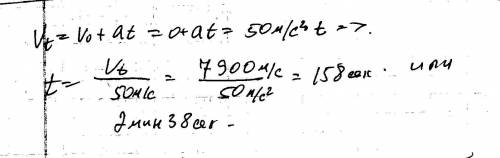 Vt = V0 + at = 0 + at = 50 м/с² t =>.
t = Vt / 50 м/с = 7900 м/с / 50 м/с² = 158 сек. или
2 мин 38 сек.